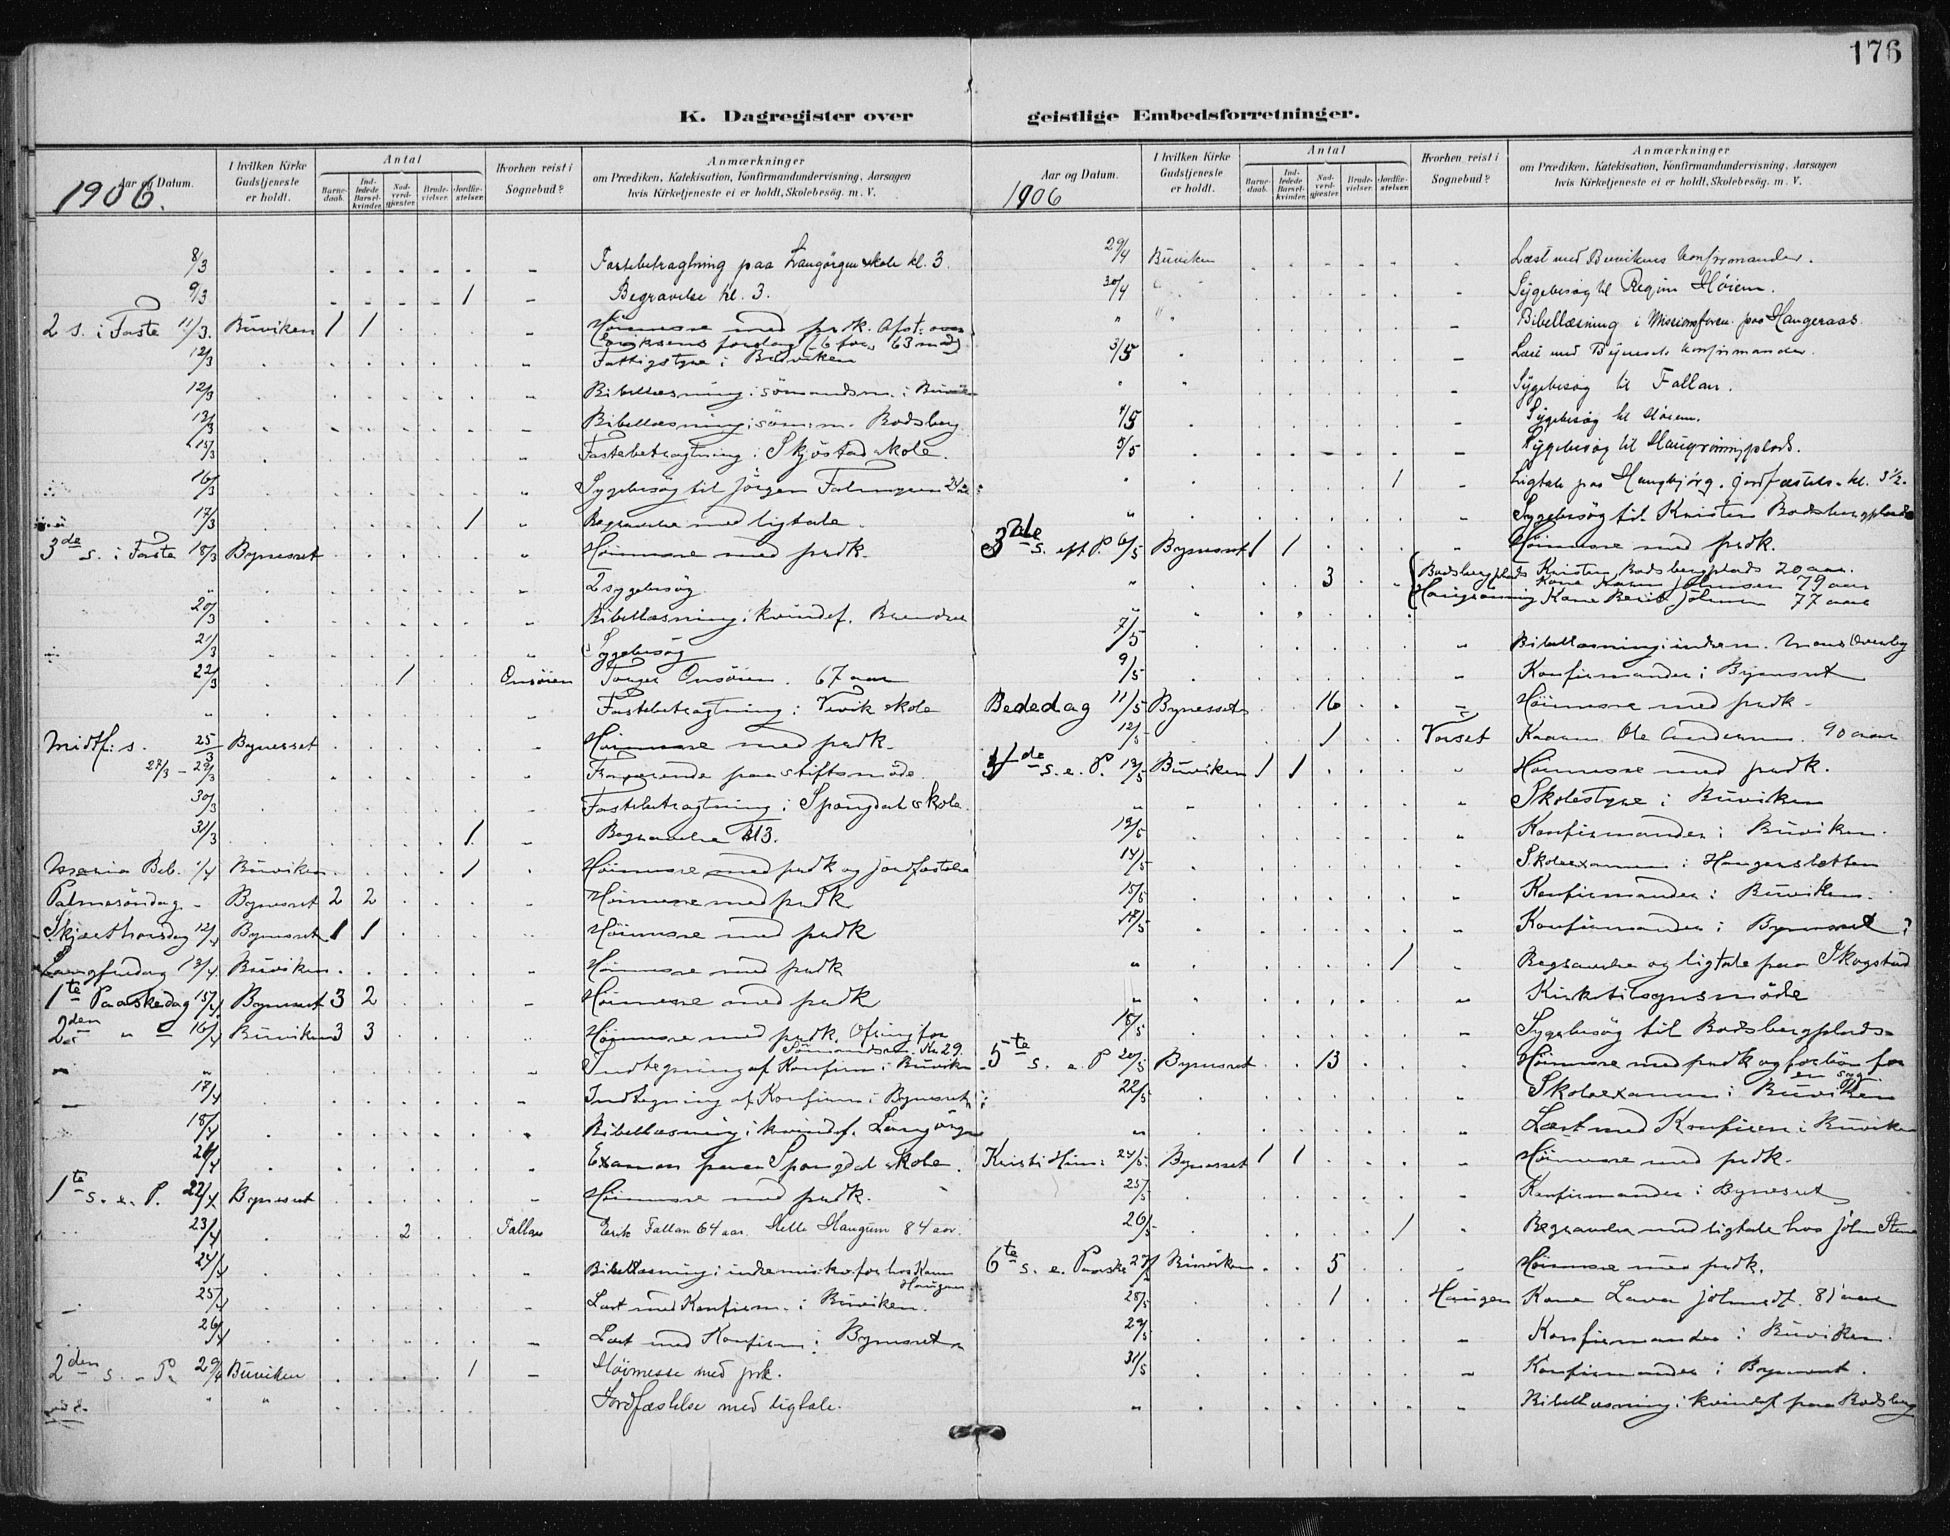 176
K. Dagregister over geistlige Embedsforretninger.
Aar og Datum.
1906.
I hvilken Kirke Gudstjeneste er holdt.
Antal
Barne-daab.
Ind-ledede Barsel-kvinder.
Nad-verd-gjæster.
Brude-vielser.
Jordfæ-stelser.
Hvorhen reist i Sognebud?
Anmærkninger
om Prædiken, Katekisation, Konfirmandundervisning, Aarsagen
hvis Kirketjeneste ei er holdt, Skolebesøg. m. V.
8/3 Fastebetragtning paa Langørgen skole kl. 3.
9/3 1 Begravelse kl. 3.
2 s. i Faste 11/3. Buviken 1 1 Høimesse med prdk. Afst. over
forslag (6 for, 63 mod)
12/3 Fattigstyre i Buviken
12/3 Bibellæsning i sømandsm. i Buviken
13/3 Bibellæsning i søm: m. Bodsberg
15/3 Fastebetragtning i Skjøstad skole.
16/3 Sygebesøg til Jørgen
17/3 1 Begravelse med ligtale.
3de s. i Faste 18/3 Bynesset Høimesse med prdk.
" 2 sygebesøg
20/3 Bibellæsning i kvindef.
21/3 Sygebesøg
22/3 1 Onsøien Onsøien. 67 aar
" Fastebetragtning i Vivik skole
Midtf: s. 25/3 Bynesset Høimesse med prdk.
27/3 - 29/3 Fraværende paa stiftsmøde
30/3 Fastebetragtning i Spongdal skole.
31/3 1 Begravelse kl 3.
Maria Beb. 1/4 Buviken 1 Høimesse med prdk og jordfæstelse
Palmesøndag - Bynesset 2 2 Høimesse med prdk
Skjærthorsdag 12/4 Bynesset 1 1 Høimesse med prdk
Langfredag 13/4 Buviken Høimesse med prdk
1te Paaskedag 15/4 Bynesset 3 2 Høimesse med prdk
2den " 16/4 Buviken 3 3 Høimesse med prdk. Ofring for
Sømandsm. Kr 29.
" Indtegning af Konfirm. i Buviken
17/4 Indtegning af Konfirm. i Bynesset
18/4 Bibellæsning i kvindef. Langørgen
Examen paa Spongdal skole.
1te s. e. P. 22/4 Bynesset Høimesse med prdk.
23/4 2 Fallan Erik Fallan 64 aar. Helle Haugum 84 aar.
24/4 Bibellæsning i indremis. hos
25/4 Læst med Konfirm. i Buviken.
26/4 Læst med Konfirm i Bynesset
2den s. P. 29/4 Buviken 1 Høimesse med prk.
" " Jordfæstelse med ligtale.
Aar og Datum.
1906
I hvilken Kirke Gudstjeneste er holdt.
Antal
Barne-daab.
Ind-ledede Barsel-kvinder.
Nad-verd-gjæster.
Brude-vielser.
Jordfæ-stelser.
Hvorhen reist i Sognebud?
Anmærkninger
om Prædiken, Katekisation, Konfirmandundervisning, Aarsagen
hvis Kirketjeneste ei er holdt, Skolebesøg. m. V.
29/4 Buviken Læst med Buvikens konfirmander.
30/4 Sygebesøg til Regine Høiem.
" " Bibellæsning i Missionsforen. paa Haugeraas
3/5 Læst med Bynesets konfirmander.
" " Sygebesøg til Fallan.
4/5 Sygebesøg til Høiem.
5/5 Sygebesøg til Haugrønningplads.
" 1 Ligtale paa Haugbjørg. Jordfæstels. kl. 3½.
" Sygebesøg til Kristen Bodsbergplads
3die s. eft P. 6/5 Bynesset 1 1 Høimesse med prdk.
" 3 Bodsbergplads Kristen Bodsbergplads 20 aar.
Kone Karen Johnsen 79 aar
Haugrønning Kone Berit Johnsen 77 aar
7/5 Bibellæsning i indrem. Overby
9/5 Konfirmander i Bynesset
Bededag 11/5 Bynesset 16 Høimesse med prdk.
12/5 1 Ole Andersen. 90 aar
4de s. e. P. 13/5 Buviken 1 1 Høimesse med prdk.
" " Skolestyre i Buviken
Konfirmander i Buviken.
14/5 Skoleexamen i Haugersletten
15/5 Konfirmander i Buviken.
17/5 Konfirmander i Bynesset
" 1 Begravelse og ligtale paa Skogstad
" Kirketilsynsmøde
18/5 Sygebesøg til Bodsbergplads
5te s. e. P 20/5 Bynesset 13 Høimesse med prdk og forbøn for
en syg
22/5 Skoleexamen i Buviken
" Læst med Konfirm i Buviken
Kristi Him: 24/5 Bynesset 1 1 Høimesse med prdk.
25/5 Konfirmander i Bynesset
26/5 1 Begravelse med ligtale hos John
6te s. e. Paaske 27/5 Buviken 5 Høimesse med prdk.
28/5 1 Haugen Kone 81 aar
29/5 Konfirmander i Buviken.
31/5 Konfirmander i Bynesset.
" Bibellæsning i kvindef paa Bodsberg